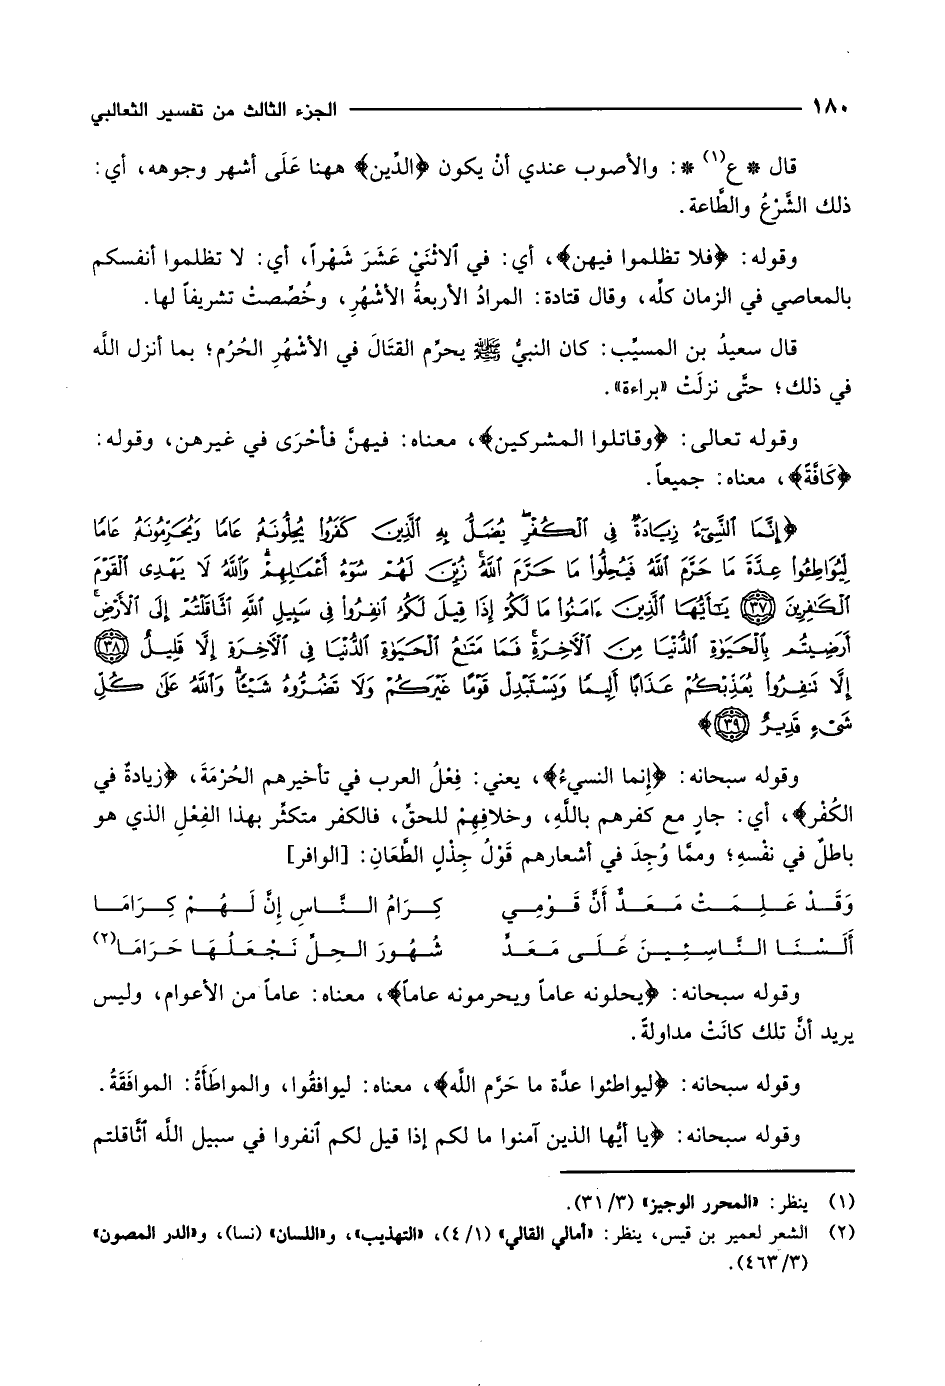 ١٨٠ ــــــــــــــــــــــــ الجزء الثالث من تفسير الثعالبي
قال * ع(١) *: والأصوب عندي أنْ يكون ﴿الدِّين﴾ ههنا عَلَى أشهر وجوهه، أي:
ذلك الشَّرْعُ والطَّاعة.
وقوله: ﴿فلا تظلموا فيهن﴾، أي: في ٱلاثْنَيْ عَشَرَ شَهْراً، أي: لا تظلموا أنفسكم
بالمعاصي في الزمان كلِّه، وقال قتادة: المرادُ الأربعةُ الأَشْهُرِ، وخُصِّصتْ تشريفاً لها.
قال سعيدُ بن المسيِّب: كان النبيُّ ﷺ يحرِّم القتَالَ في الأشْهُرِ الحُرُم؛ بما أنزل اللَّه
في ذلك؛ حتَّى نزلَتْ «براءة».
وقوله تعالى: ﴿وقاتلوا المشركين﴾، معناه: فيهنَّ فأحْرَى في غيرهن، وقوله:
﴿كَافَّةً﴾، معناه: جميعاً.
﴿إِنَّمَا ٱلنَّسِىٓءُ زِيَادَةٌ فِى ٱلْكُفْرِ يُضَلُّ بِهِ ٱلَّذِينَ كَفَرُوا۟ يُحِلُّونَهُۥ عَامًا وَيُحَرِّمُونَهُۥ عَامًا
لِّيُوَاطِـُٔوا۟ عِدَّةَ مَا حَرَّمَ ٱللَّهُ فَيُحِلُّوا۟ مَا حَرَّمَ ٱللَّهُ زُيِّنَ لَهُمْ سُوٓءُ أَعْمَـٰلِهِمْ وَٱللَّهُ لَا يَهْدِى ٱلْقَوْمَ
ٱلْكَـٰفِرِينَ ﴿٣٧﴾ يَـٰٓأَيُّهَا ٱلَّذِينَ ءَامَنُوا۟ مَا لَكُمْ إِذَا قِيلَ لَكُمُ ٱنفِرُوا۟ فِى سَبِيلِ ٱللَّهِ ٱثَّاقَلْتُمْ إِلَى ٱلْأَرْضِ
أَرَضِيتُم بِٱلْحَيَوٰةِ ٱلدُّنْيَا مِنَ ٱلْـَٔاخِرَةِ فَمَا مَتَـٰعُ ٱلْحَيَوٰةِ ٱلدُّنْيَا فِى ٱلْـَٔاخِرَةِ إِلَّا قَلِيلٌ ﴿٣٨﴾
إِلَّا تَنفِرُوا۟ يُعَذِّبْكُمْ عَذَابًا أَلِيمًا وَيَسْتَبْدِلْ قَوْمًا غَيْرَكُمْ وَلَا تَضُرُّوهُ شَيْـًٔا وَٱللَّهُ عَلَىٰ كُلِّ
شَىْءٍ قَدِيرٌ ﴿٣٩﴾﴾
وقوله سبحانه: ﴿إنما النسيءُ﴾، يعني: فِعْلُ العرب في تأخيرهم الحُرْمَةَ، ﴿زيادةٌ في
الكُفْر﴾، أي: جارٍ مع كفرهم باللَّهِ، وخلافِهِمْ للحقِّ، فالكفر متكثِّر بهذا الفِعْلِ الذي هو
باطلٌ في نفْسِهِ؛ وممَّا وُجِدَ في أشعارهم قَوْلُ جِذْلِ الطَّعَانِ: [الوافر]
وَقَدْ عَلِمَتْ مَعَدٌّ أَنَّ قَوْمِي كِرَامُ النَّاسِ إِنَّ لَهُمْ كِرَامَا
أَلَسْنَا النَّاسِئِينَ عَلَى مَعَدٍّ شُهُورَ الحِلِّ نَجْعَلُهَا حَرَامَا(٢)
وقوله سبحانه: ﴿يحلونه عاماً ويحرمونه عاماً﴾، معناه: عاماً من الأعوام، وليس
يريد أنَّ تلك كانَتْ مداولةً.
وقوله سبحانه: ﴿ليواطئوا عدَّة ما حَرَّم اللَّه﴾، معناه: ليوافقُوا، والمواطَأَةُ: الموافَقَةُ.
وقوله سبحانه: ﴿يا أيُّها الذين آمنوا ما لكم إذا قيل لكم ٱنفروا في سبيل اللَّه ٱثَّاقلتم
(١) ينظر: «المحرر الوجيز» (٣/ ٣١).
(٢) الشعر لعمير بن قيس، ينظر: «أمالي القالي» (١/ ٤)، «التهذيب»، و«اللسان» (نسا)، و«الدر المصون»
(٣/ ٤٦٣).